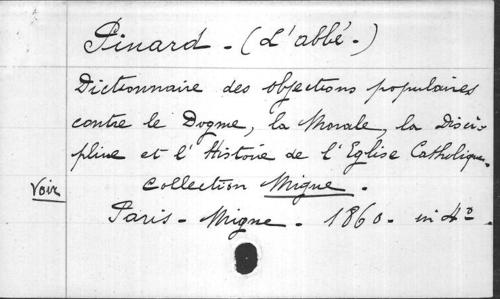 Pinard - (L'abbé -)
Dictionnaire des objections populaires
contre le Dogme, la Morale, la Disci-
pline et l'Histoire de l'Eglise Catholique.
collection Migne.
Voir
Paris - Migne - 1860 - in 4º.